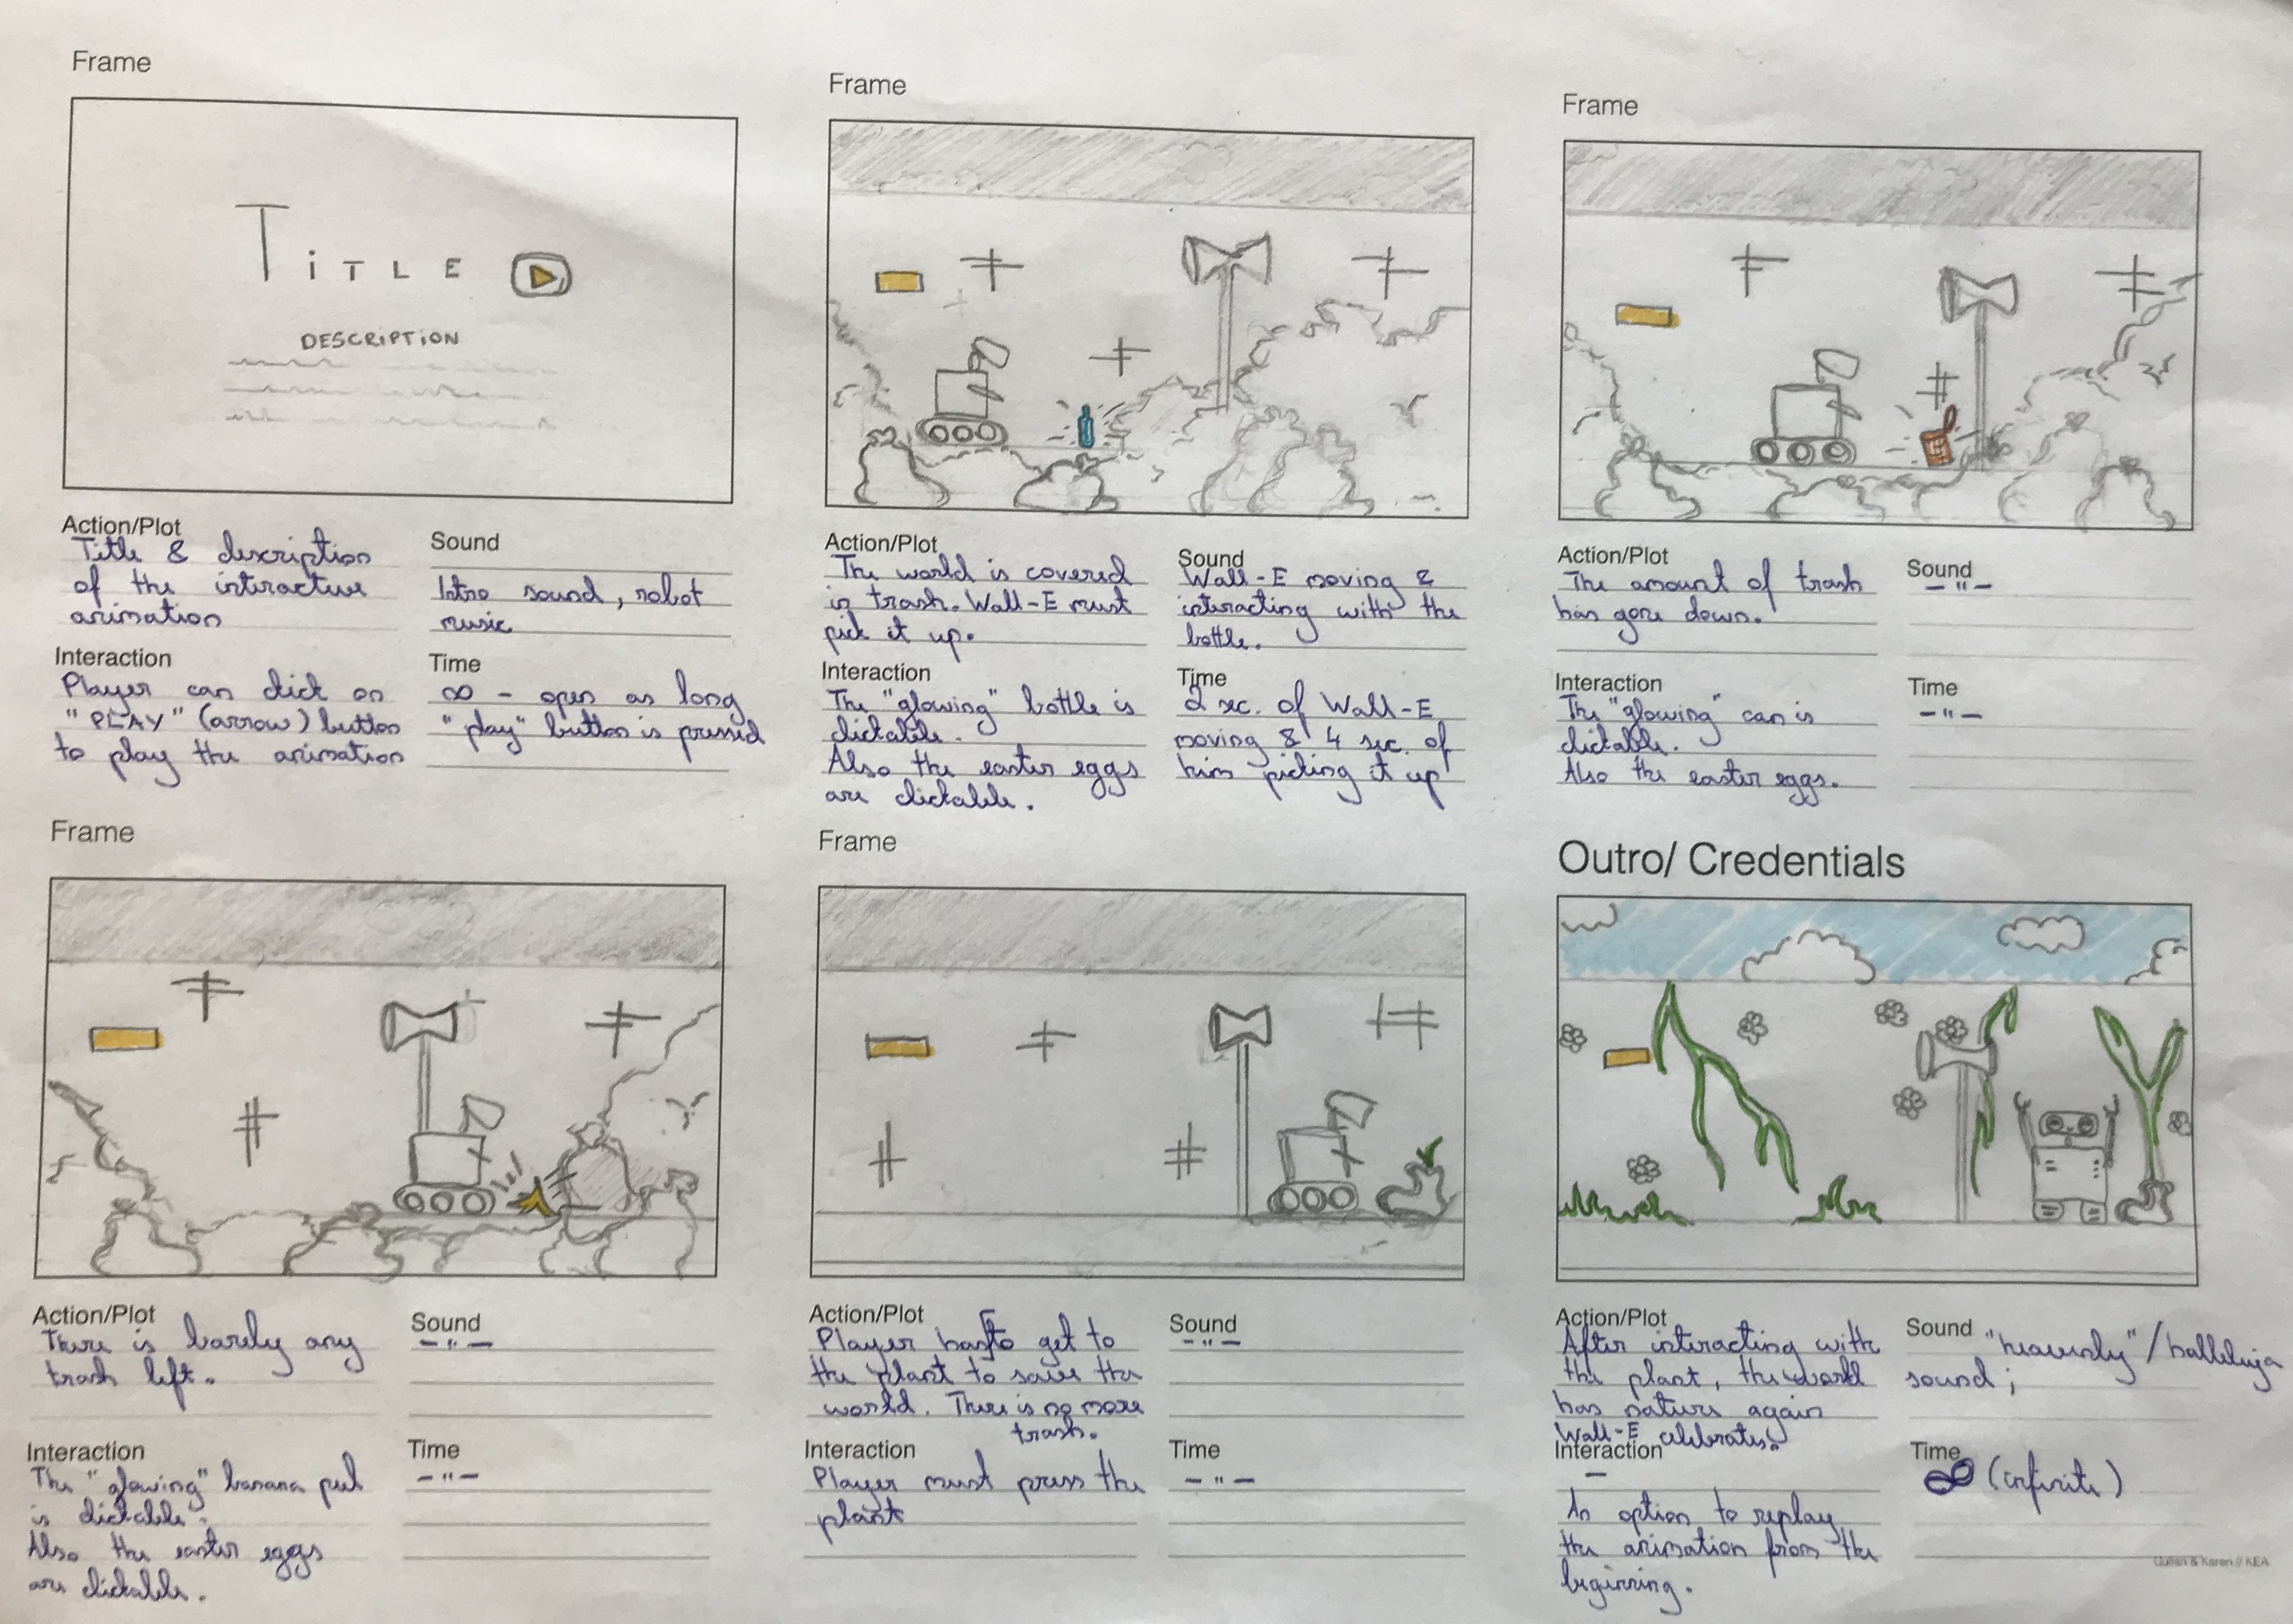 Frame
TiTLE
DESCRiPTiON
Action/Plot
Title & description
of the interactive
animation
Sound
Intro sound, robot
music
Interaction
Player can click on
"PLAY" (arrow) button
to play the animation
Time
∞ - open as long
"play" button is pressed
Frame
Action/Plot
The world is covered
in trash. Wall-E must
pick it up.
Sound
Wall-E moving &
interacting with the
bottle.
Interaction
The "glowing" bottle is
clickable.
Also the easter eggs
are clickable.
Time
2 sec. of Wall-E
moving & 4 sec. of
him picking it up
Frame
Action/Plot
The amount of trash
has gone down.
Sound
- " -
Interaction
The "glowing" can is
clickable.
Also the easter eggs.
Time
- " -
Frame
Action/Plot
There is barely any
trash left.
Sound
- " -
Interaction
The "glowing" banana peel
is clickable.
Also the easter eggs
are clickable.
Time
- " -
Frame
Action/Plot
Player has to get to
the plant to save the
world. There is no more
trash.
Sound
- " -
Interaction
Player must press the
plant
Time
- " -
Outro/ Credentials
Action/Plot
After interacting with
the plant, the world
has nature again
Wall-E celibrates.
Sound
"heavenly"/halleluja
sound;
Interaction
-
An option to replay
the animation from the
beginning.
Time
∞ (infinite)
& Karen // KEA